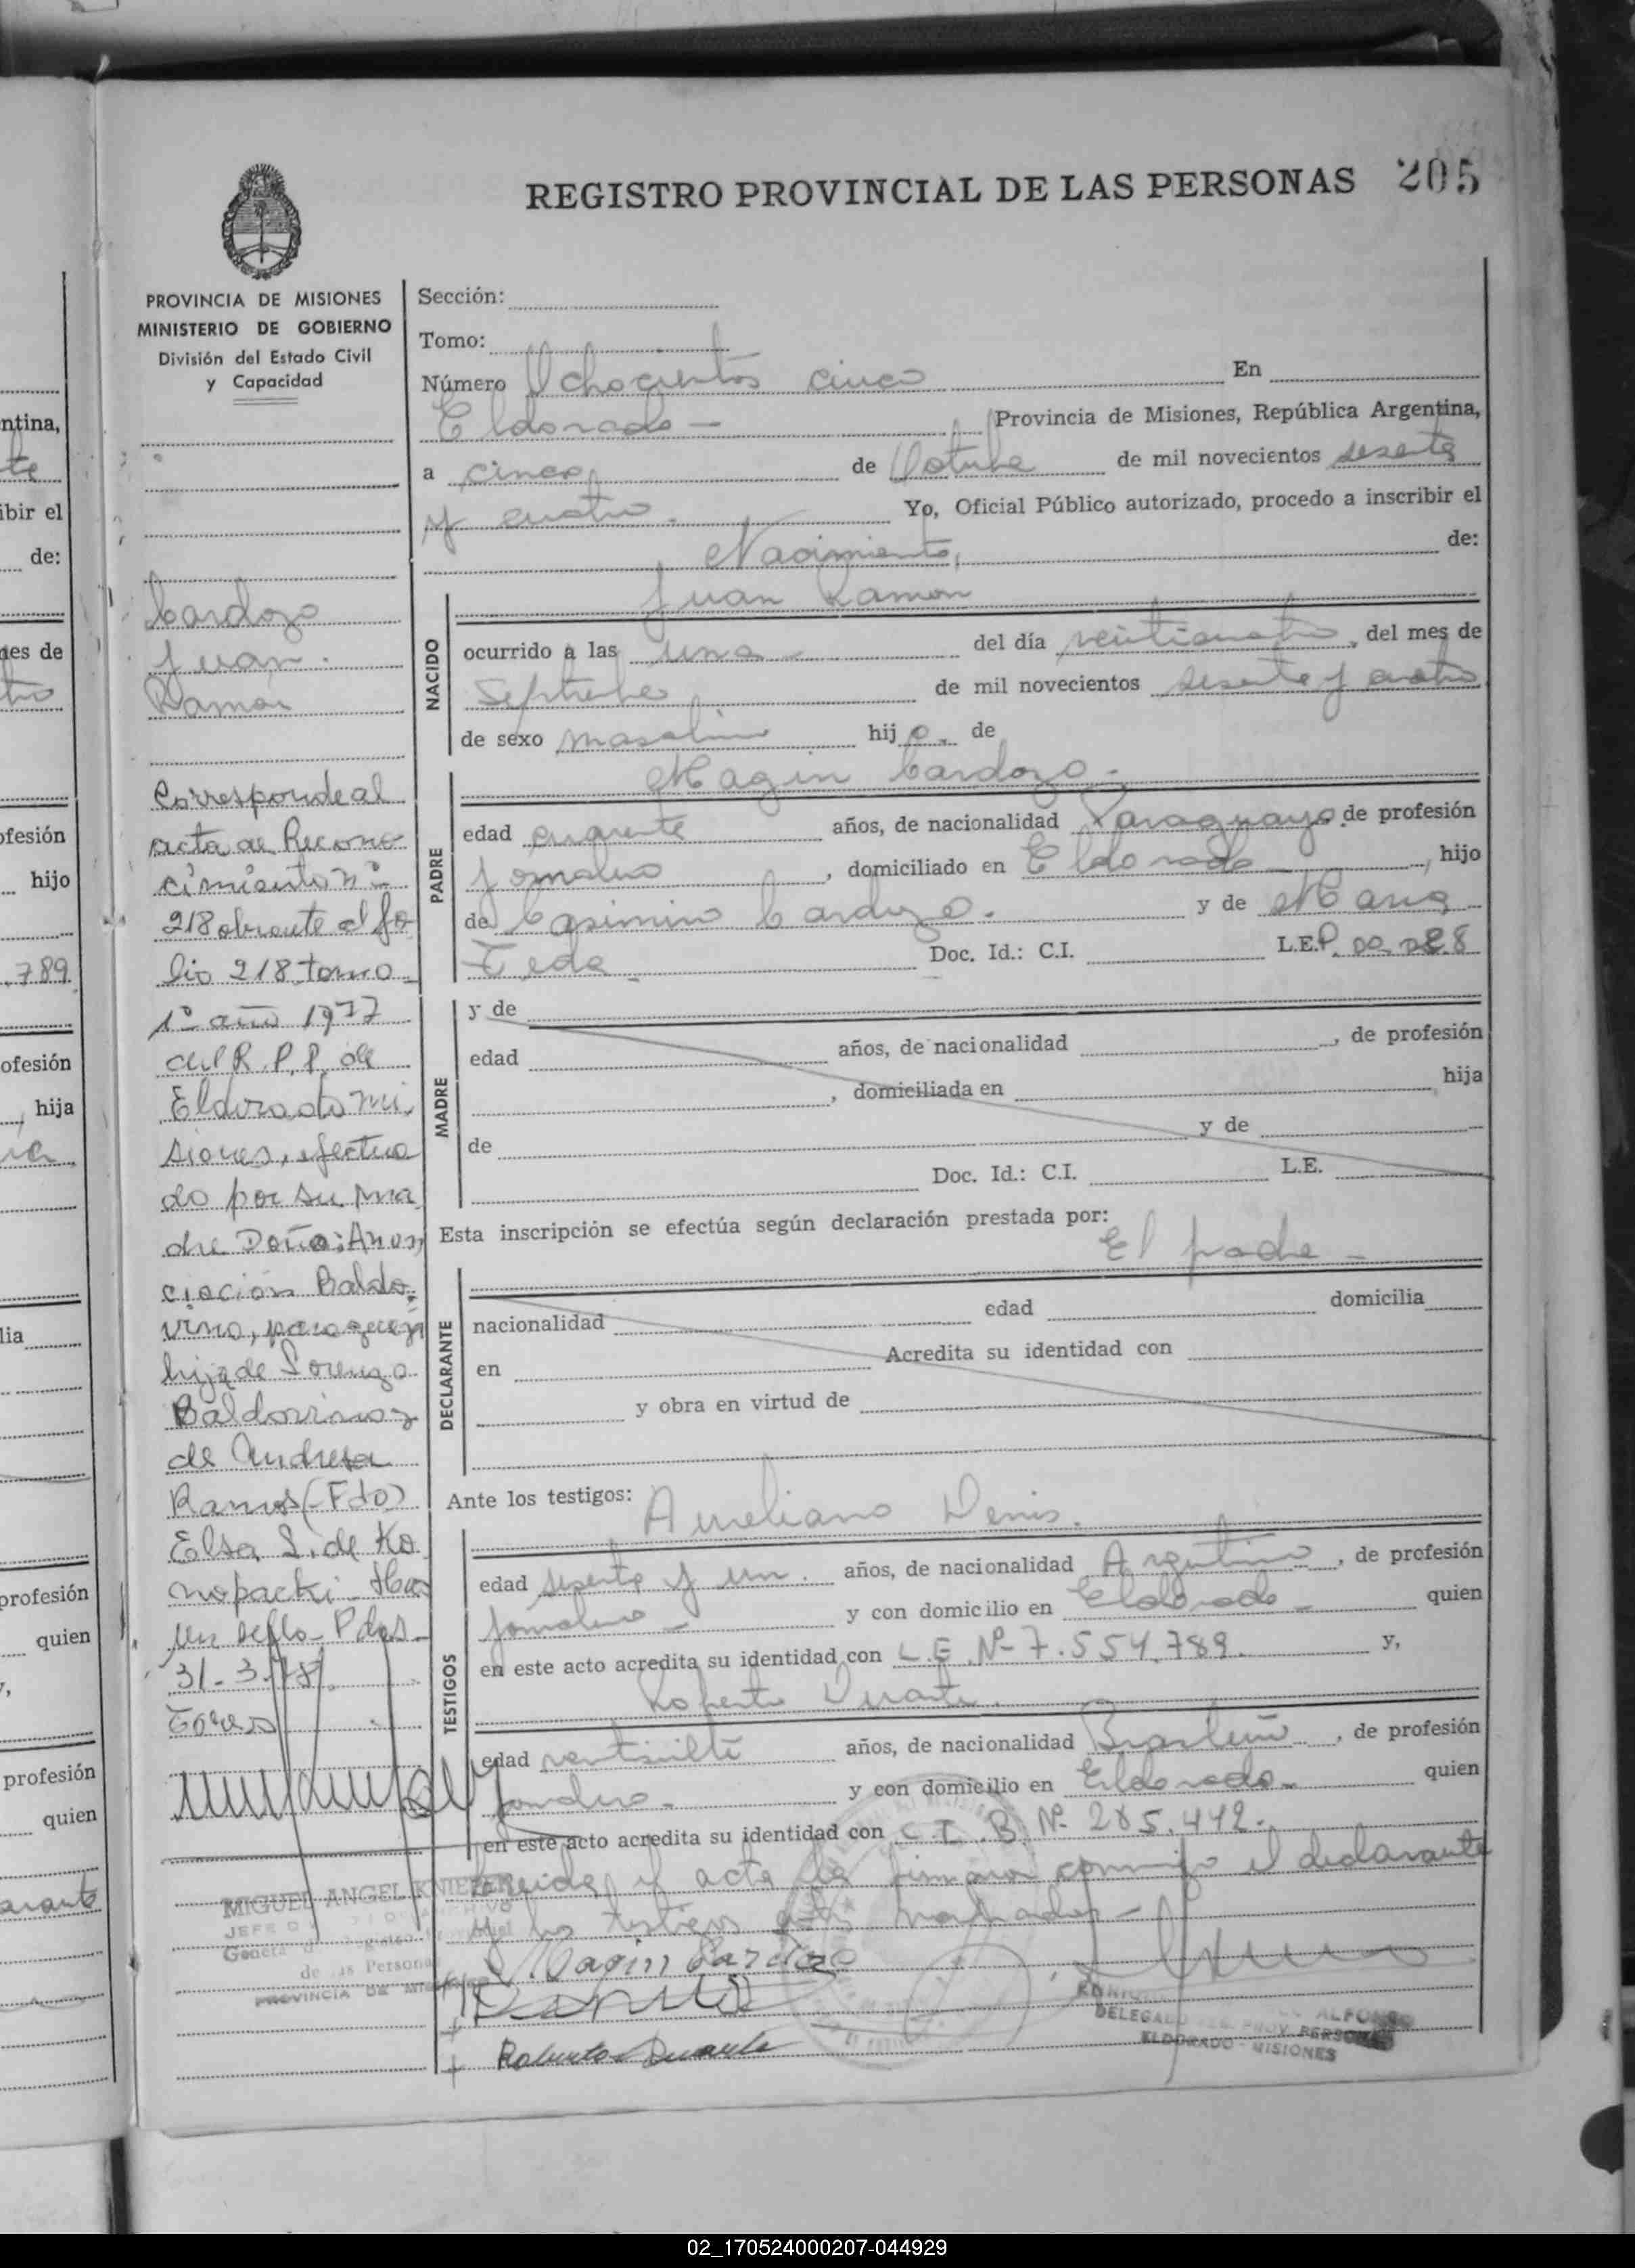 REGISTRO PROVINCIAL DE LAS PERSONAS 205
PROVINCIA DE MISIONES
MINISTERIO DE GOBIERNO
División del Estado Civil
y Capacidad
Cardozo
Juan
Ramón
Corresponde al
acta de Recono
cimiento nº
218 obrante al fo
lio 218 tomo
1º año 1977
del R.P.P. de
Eldorado Mi
siones, efectua
do por su ma
dre Doña: Anun
ciación Baldo
vino, paraguaya
hija de Lorenzo
Baldovino y
de Andresa
Ramos (Fdo)
Elsa S. de Ko
nopacki - Hay
un sello - Pdas -
31-3-78
MIGUEL ANGEL KNIE
de las Persona
PROVINCIA DE MISIONES
Sección:
Tomo:
Número Ochocientos cinco En
Eldorado - Provincia de Misiones, República Argentina,
a cinco de Octubre de mil novecientos sesenta
y cuatro. Yo, Oficial Público autorizado, procedo a inscribir el
Nacimiento, de:
Juan Ramon
NACIDO
ocurrido a las una - del día veinticuatro, del mes de
Septiembre de mil novecientos sesenta y cuatro
de sexo masculino hijo. de
Magin Cardozo -
PADRE
edad cuarenta años, de nacionalidad Paraguayo de profesión
jornalero, domiciliado en Eldorado, hijo
de Casimiro Cardozo. y de Maria
Doc. Id.: C.I. L.E.
MADRE
y de
edad años, de nacionalidad , de profesión
, domiciliada en , hija
de y de
Doc. Id.: C.I. L.E.
Esta inscripción se efectúa según declaración prestada por:
El padre -
DECLARANTE
nacionalidad edad domicilia
en Acredita su identidad con
y obra en virtud de
Ante los testigos:
Aureliano Denis.
TESTIGOS
edad sesenta y un. años, de nacionalidad Argentino, de profesión
jornalero - y con domicilio en Eldorado - quien
en este acto acredita su identidad con L.E. Nº 7.554.789. y,
Roberto Duarte.
edad veintisiete años, de nacionalidad Brasileño, de profesión
jornalero - y con domicilio en Eldorado - quien
en este acto acredita su identidad con C.I.B. Nº 285.442.
Leida el acta la firman conmigo el declarante
y los testigos
Magin Cardozo
Roberto Duarte
ALFONSO
DELEGADO PROV. PERSONAS
ELDORADO - MISIONES
ntina,
te
ibir el
de:
nes de
ofesión
hijo
.789
ofesión
hija
lia
profesión
quien
profesión
quien
02_170524000207-044929